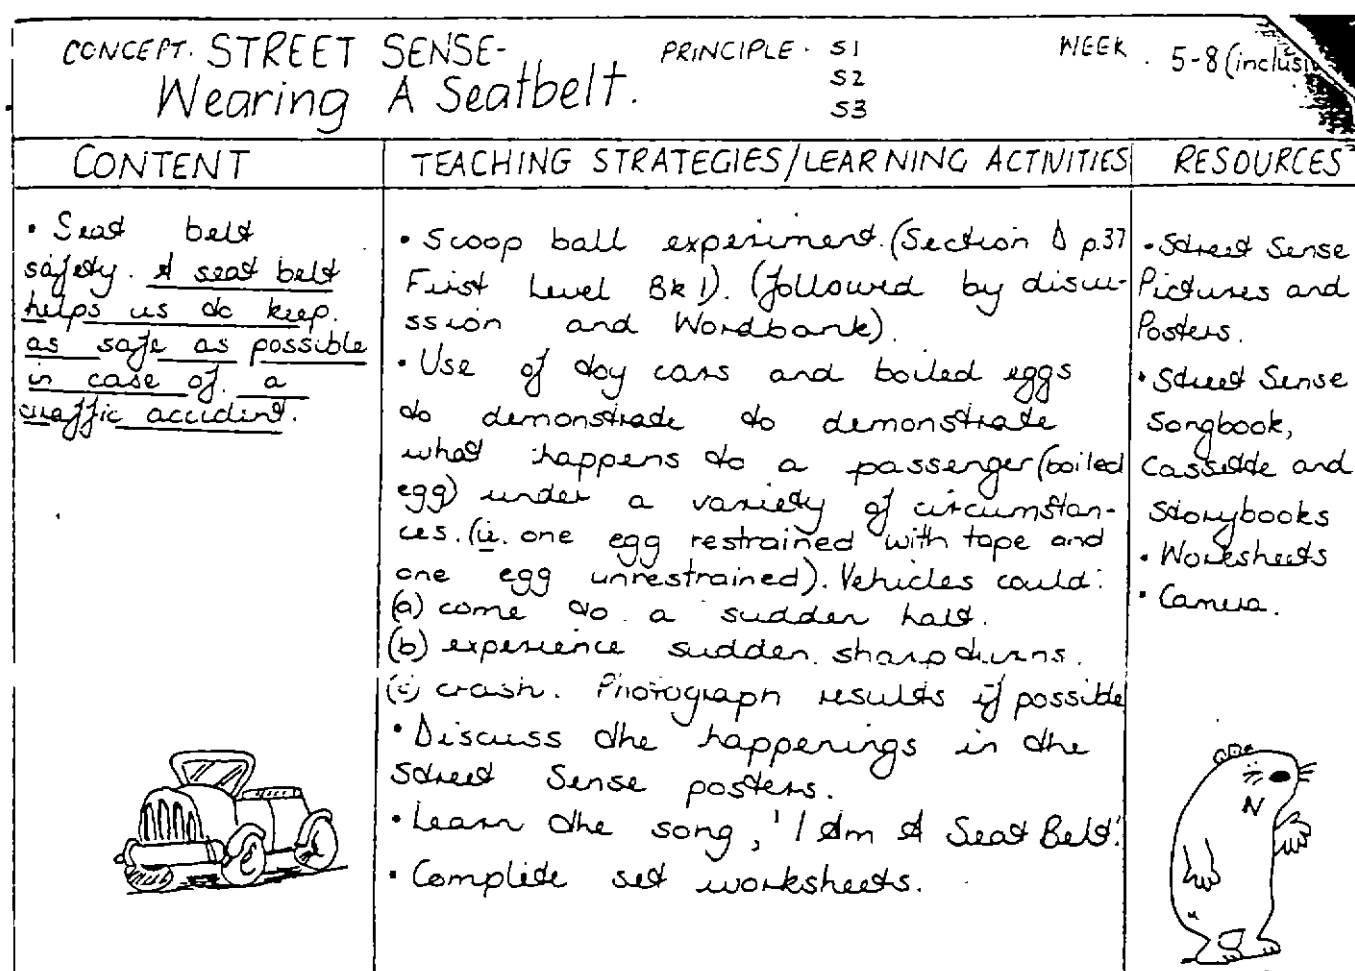 CONCEPT. STREET SENSE-
Wearing A Seatbelt.
PRINCIPLE. S1
S2
S3
WEEK. 5-8 (inclusi
CONTENT
• Seat belt
safety. A seat belt
helps us to keep.
as safe as possible
in case of. a
traffic accident.
TEACHING STRATEGIES/LEARNING ACTIVITIES
• Scoop ball experiment. (Section D p.37
First Level Bk 1). (followed by discu-
ssion and Wordbank).
• Use of toy cars and boiled eggs
to demonstrate to demonstrate
what happens to a passenger (boiled
egg) under a variety of circumstan-
ces. (ie. one egg restrained with tape and
one egg unrestrained). Vehicles could:
(a) come to a sudden halt.
(b) experience sudden. sharp turns.
(c) crash. Photograph results if possible
• Discuss the happenings in the
Street Sense posters.
• Learn the song, 'I Am A Seat Belt'.
• Complete set worksheets.
RESOURCES
• Street Sense
Pictures and
Posters.
• Street Sense
Songbook,
Cassette and
Storybooks
• Worksheets
• Camera.
N